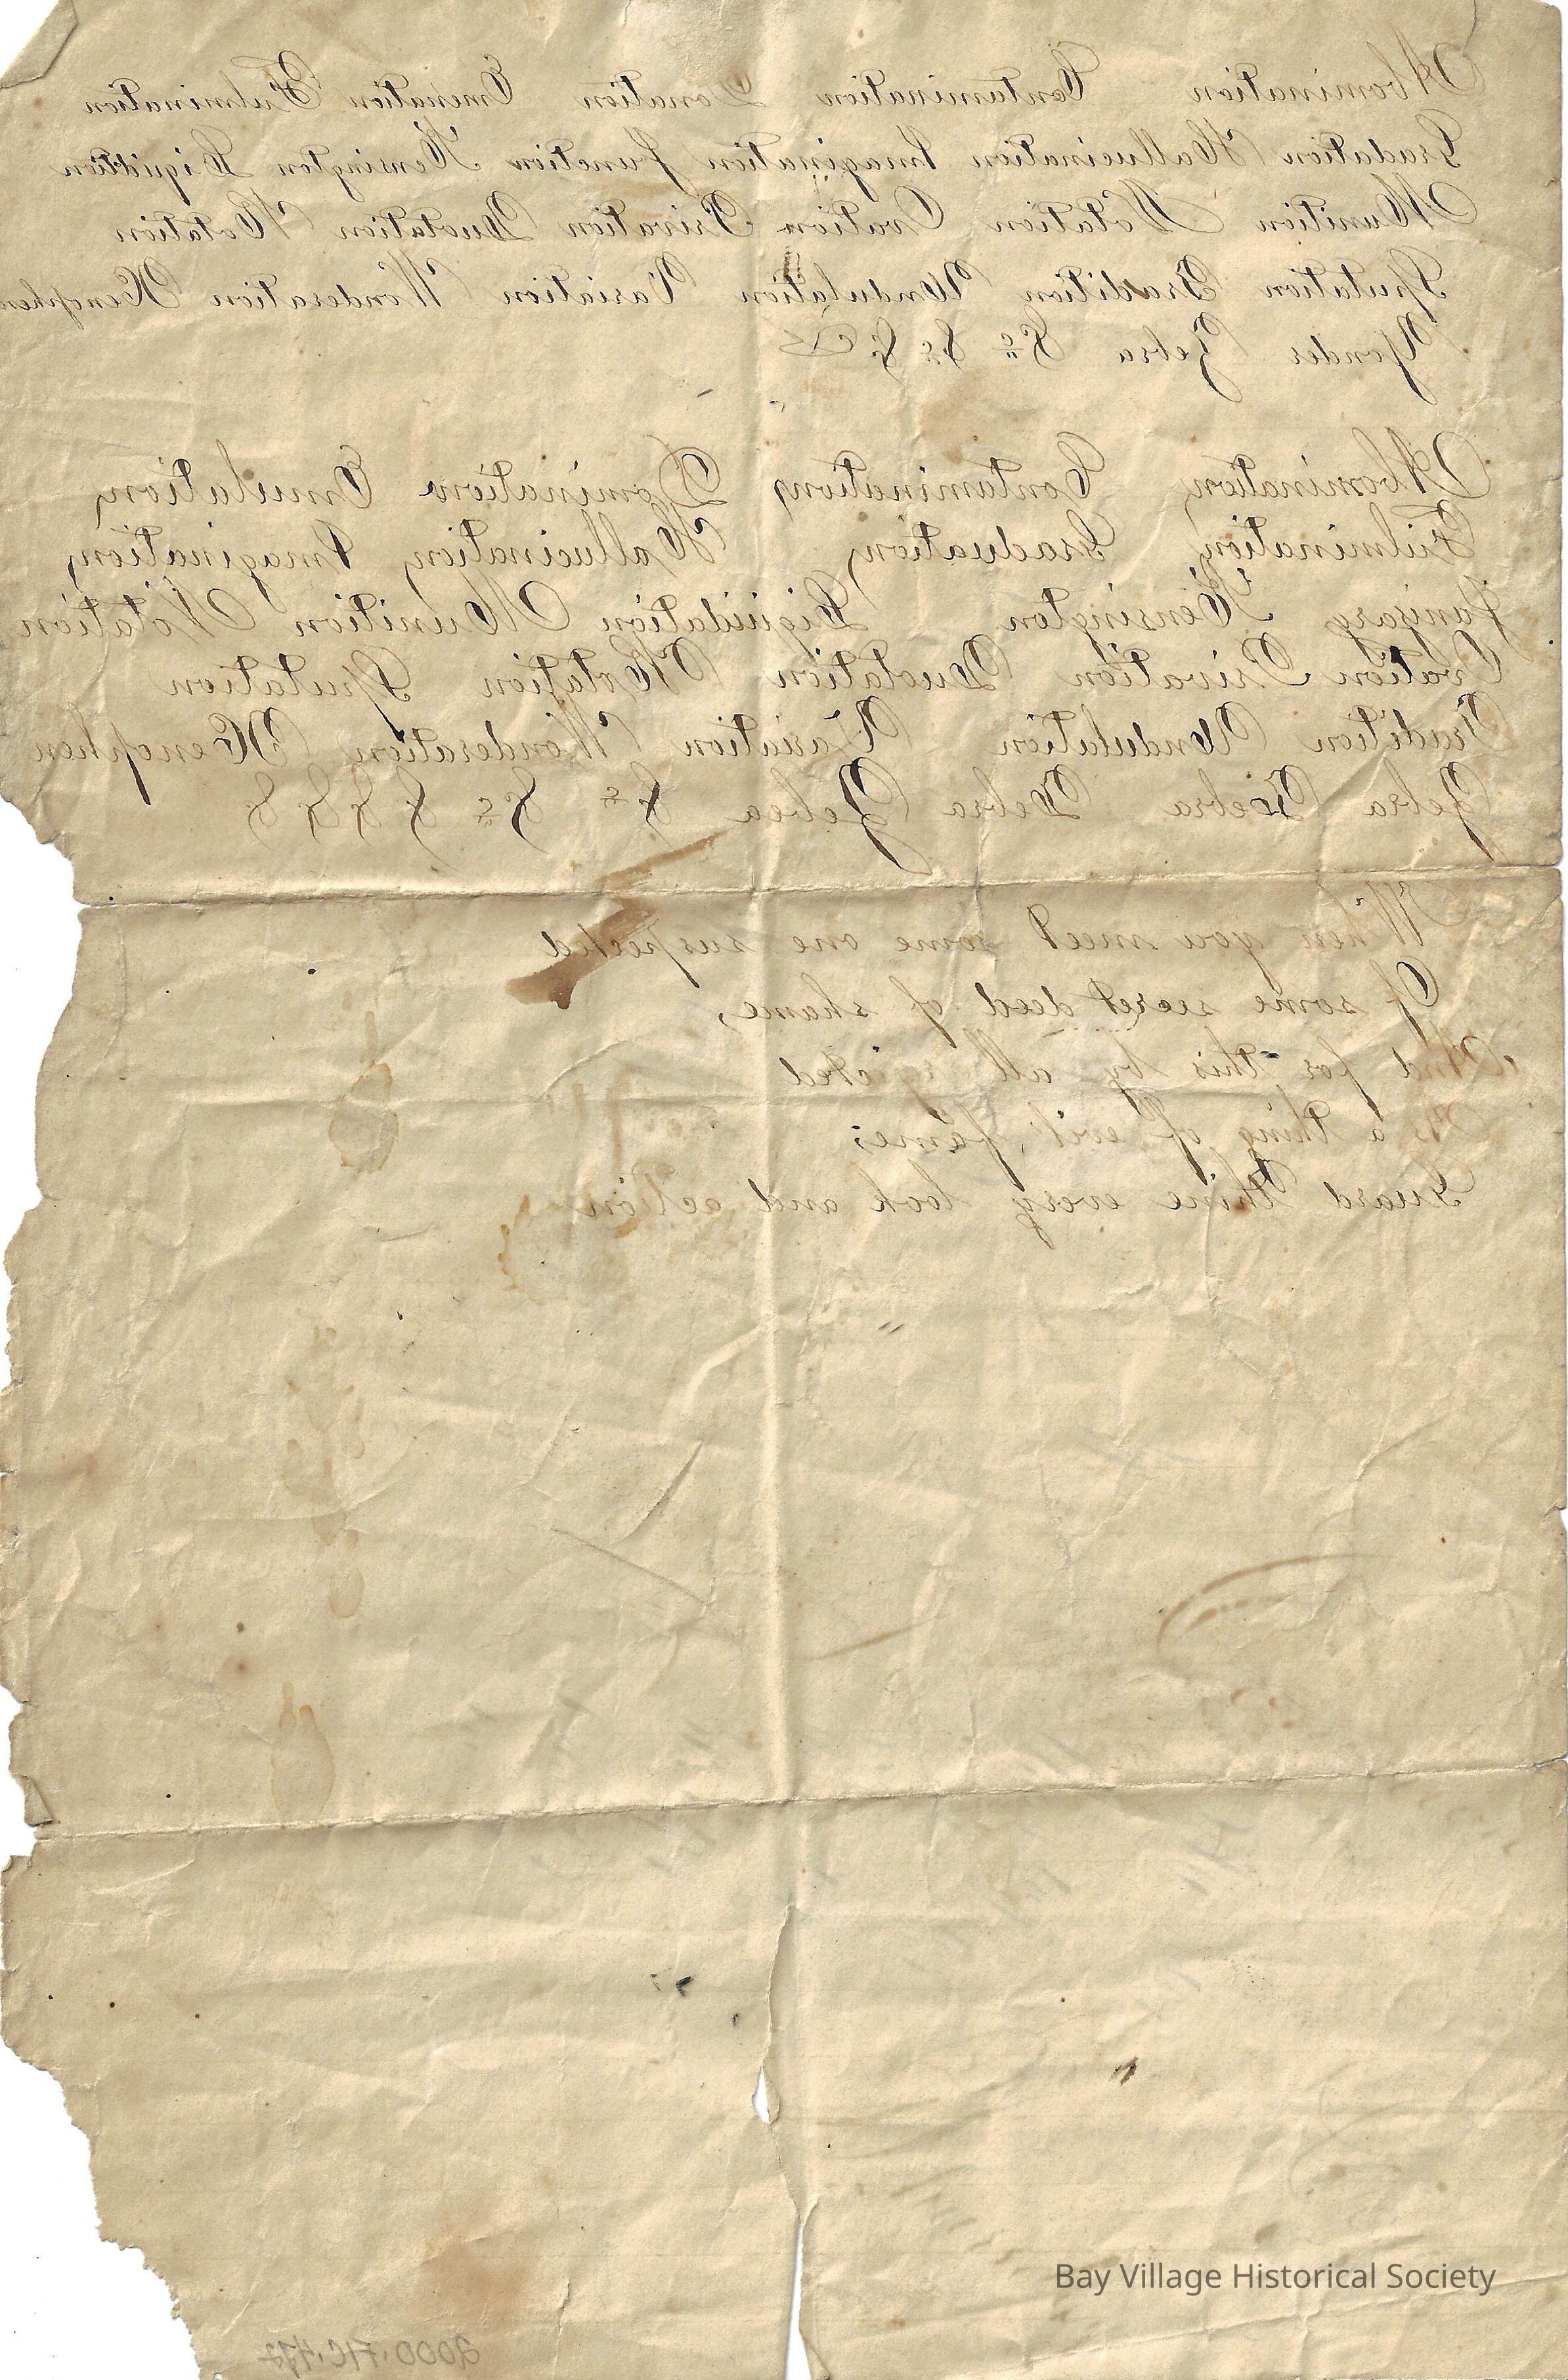 Abomination Contamination Donation Emenation Fulmination
Gradation Hallucination Imagination Junction Kensington Liquidtion
Munition Notation Ovation Privation Quotation Rotation
Sputation Tradition Undulation Variation Wonderation Xenophen
Yonder Zebra &c &c &c
Abomination, Contamination, Domination Emulation,
Fulmination, Graduation, Hallucination, Imagination,
Kensington Liquidation, Munition Notation
Ovation Privation Quotation Rotation Sputation
Tradition Undulation Variation Wonderation Xenophen
Zebra Zebra &c &c & & & &
When you meet some one suspected
Of some secret deed of shame,
And for this by all rejected
As a thing of evil fame;
Guard thine every look and action
Bay Village Historical Society
2000.F1C.472